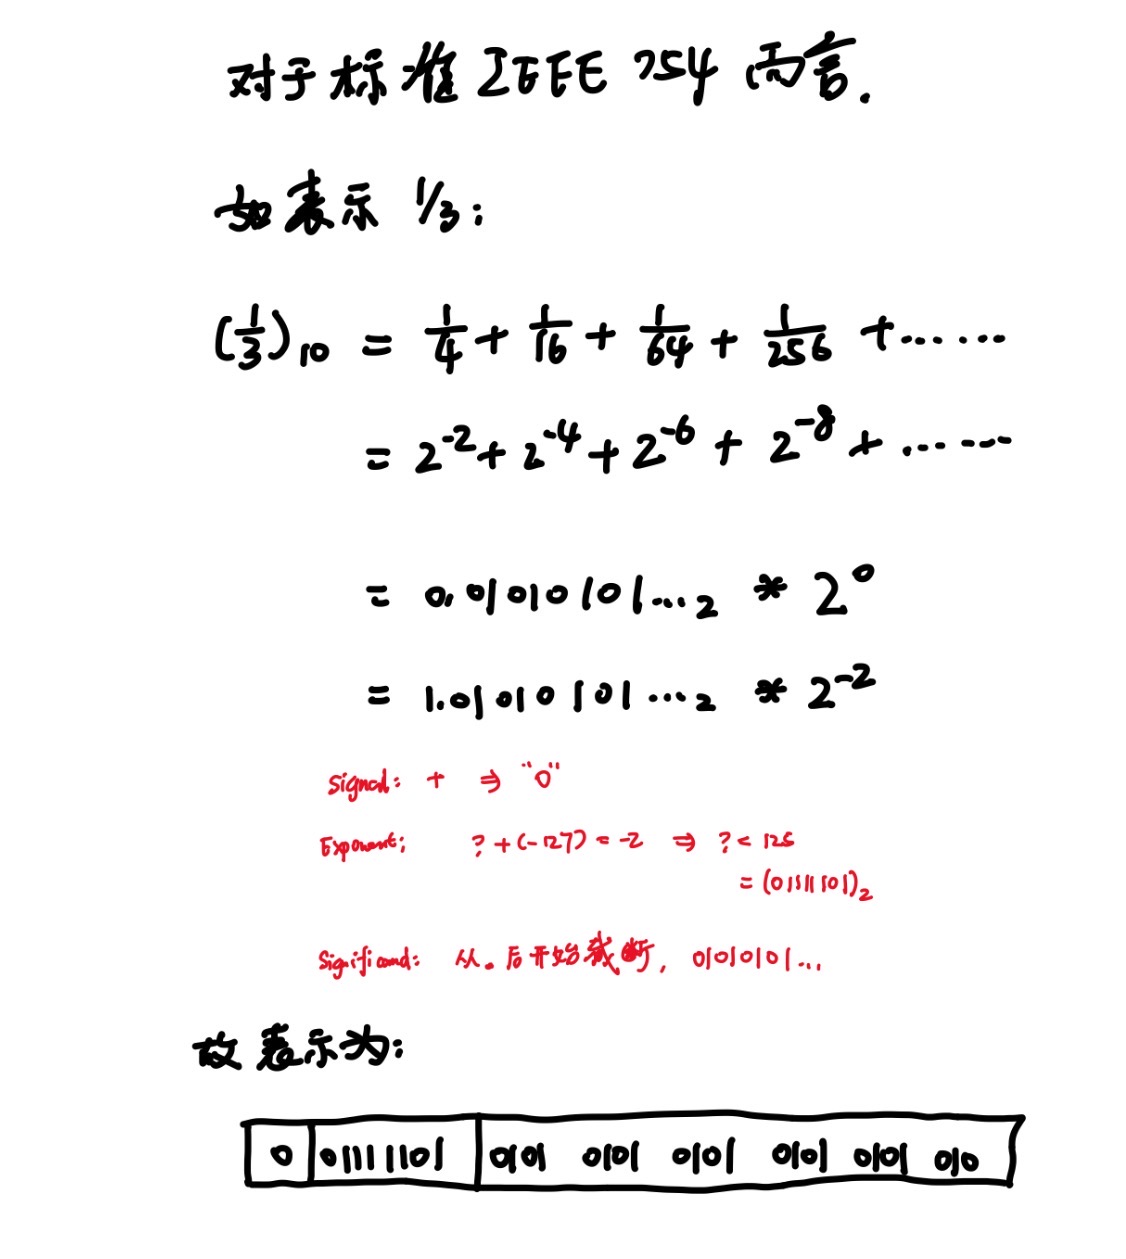 对于标准 IEEE 754 而言.
如表示 1/3:
(1/3)10 = 1/4 + 1/16 + 1/64 + 1/256 + ......
= 2^-2 + 2^-4 + 2^-6 + 2^-8 + ......
= 0.01010101...2 * 2^0
= 1.01010101...2 * 2^-2
Signal: + ⇒ "0"
Exponent: ? + (-127) = -2 ⇒ ? = 125
= (01111101)2
Significand: 从.后开始截断, 01010101...
故表示为:
0 01111101 0101 0101 0101 0101 0101 010